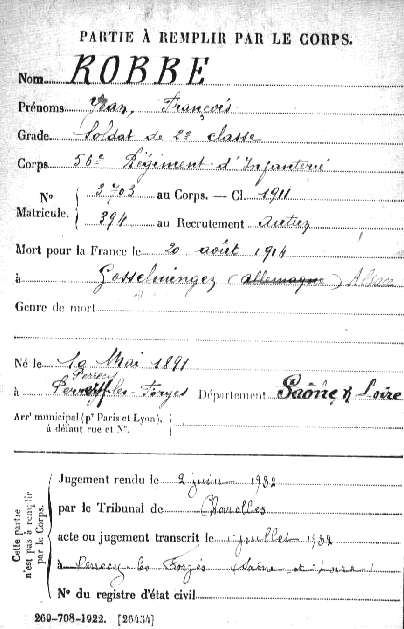 PARTIE À REMPLIR PAR LE CORPS.
Nom ROBBE
Prénoms Jean, François
Grade Soldat de 2e classe
Corps 56e Régiment d'Infanterie
N° Matricule. { 3703 au Corps. — Cl. 1911
394 au Recrutement Autun
Mort pour la France le 20 août 1914
à Gosselmingen (allemagne) Alsace
Genre de mort
Né le 10 Mai 1891
Perrecy
à les-Forges Département Saône & Loire
Arrt municipal (pr Paris et Lyon), à défaut rue et N°.
Cette partie n'est pas à remplir par le Corps.
Jugement rendu le 2 juin 1932
par le Tribunal de
acte ou jugement transcrit le 1 juillet 1932
à Perrecy les Forges (Saône et Loire)
N° du registre d'état civil
269-708-1922. [26434]